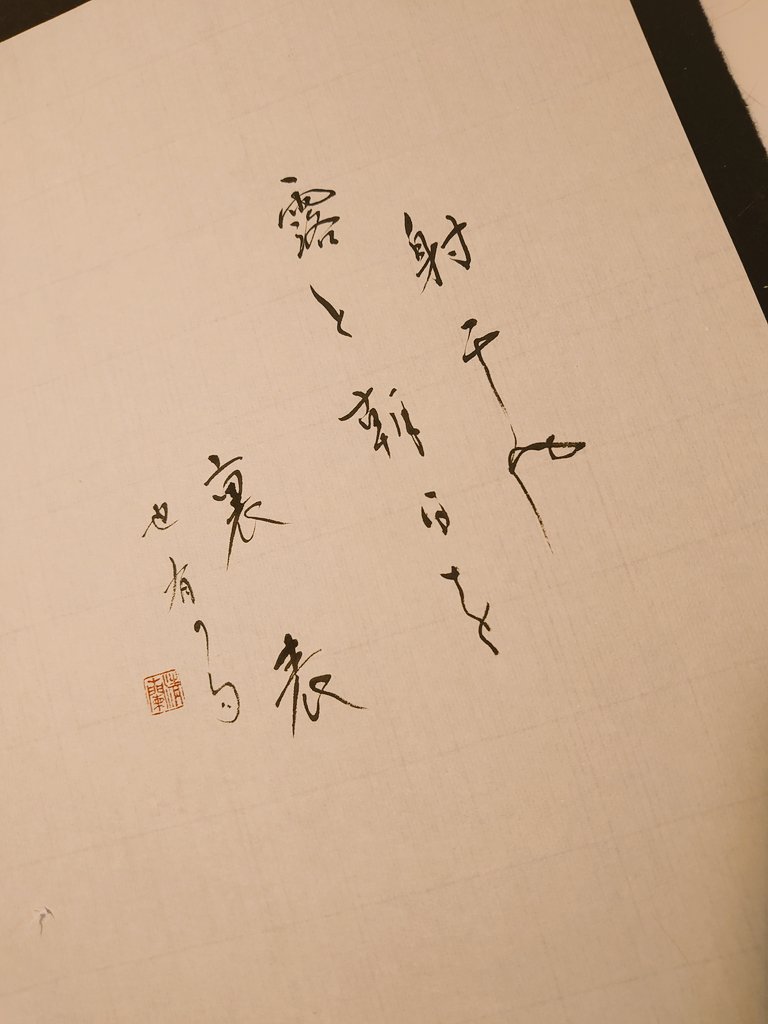 射干や
露と朝日を
裏表
也有の句
清蘭